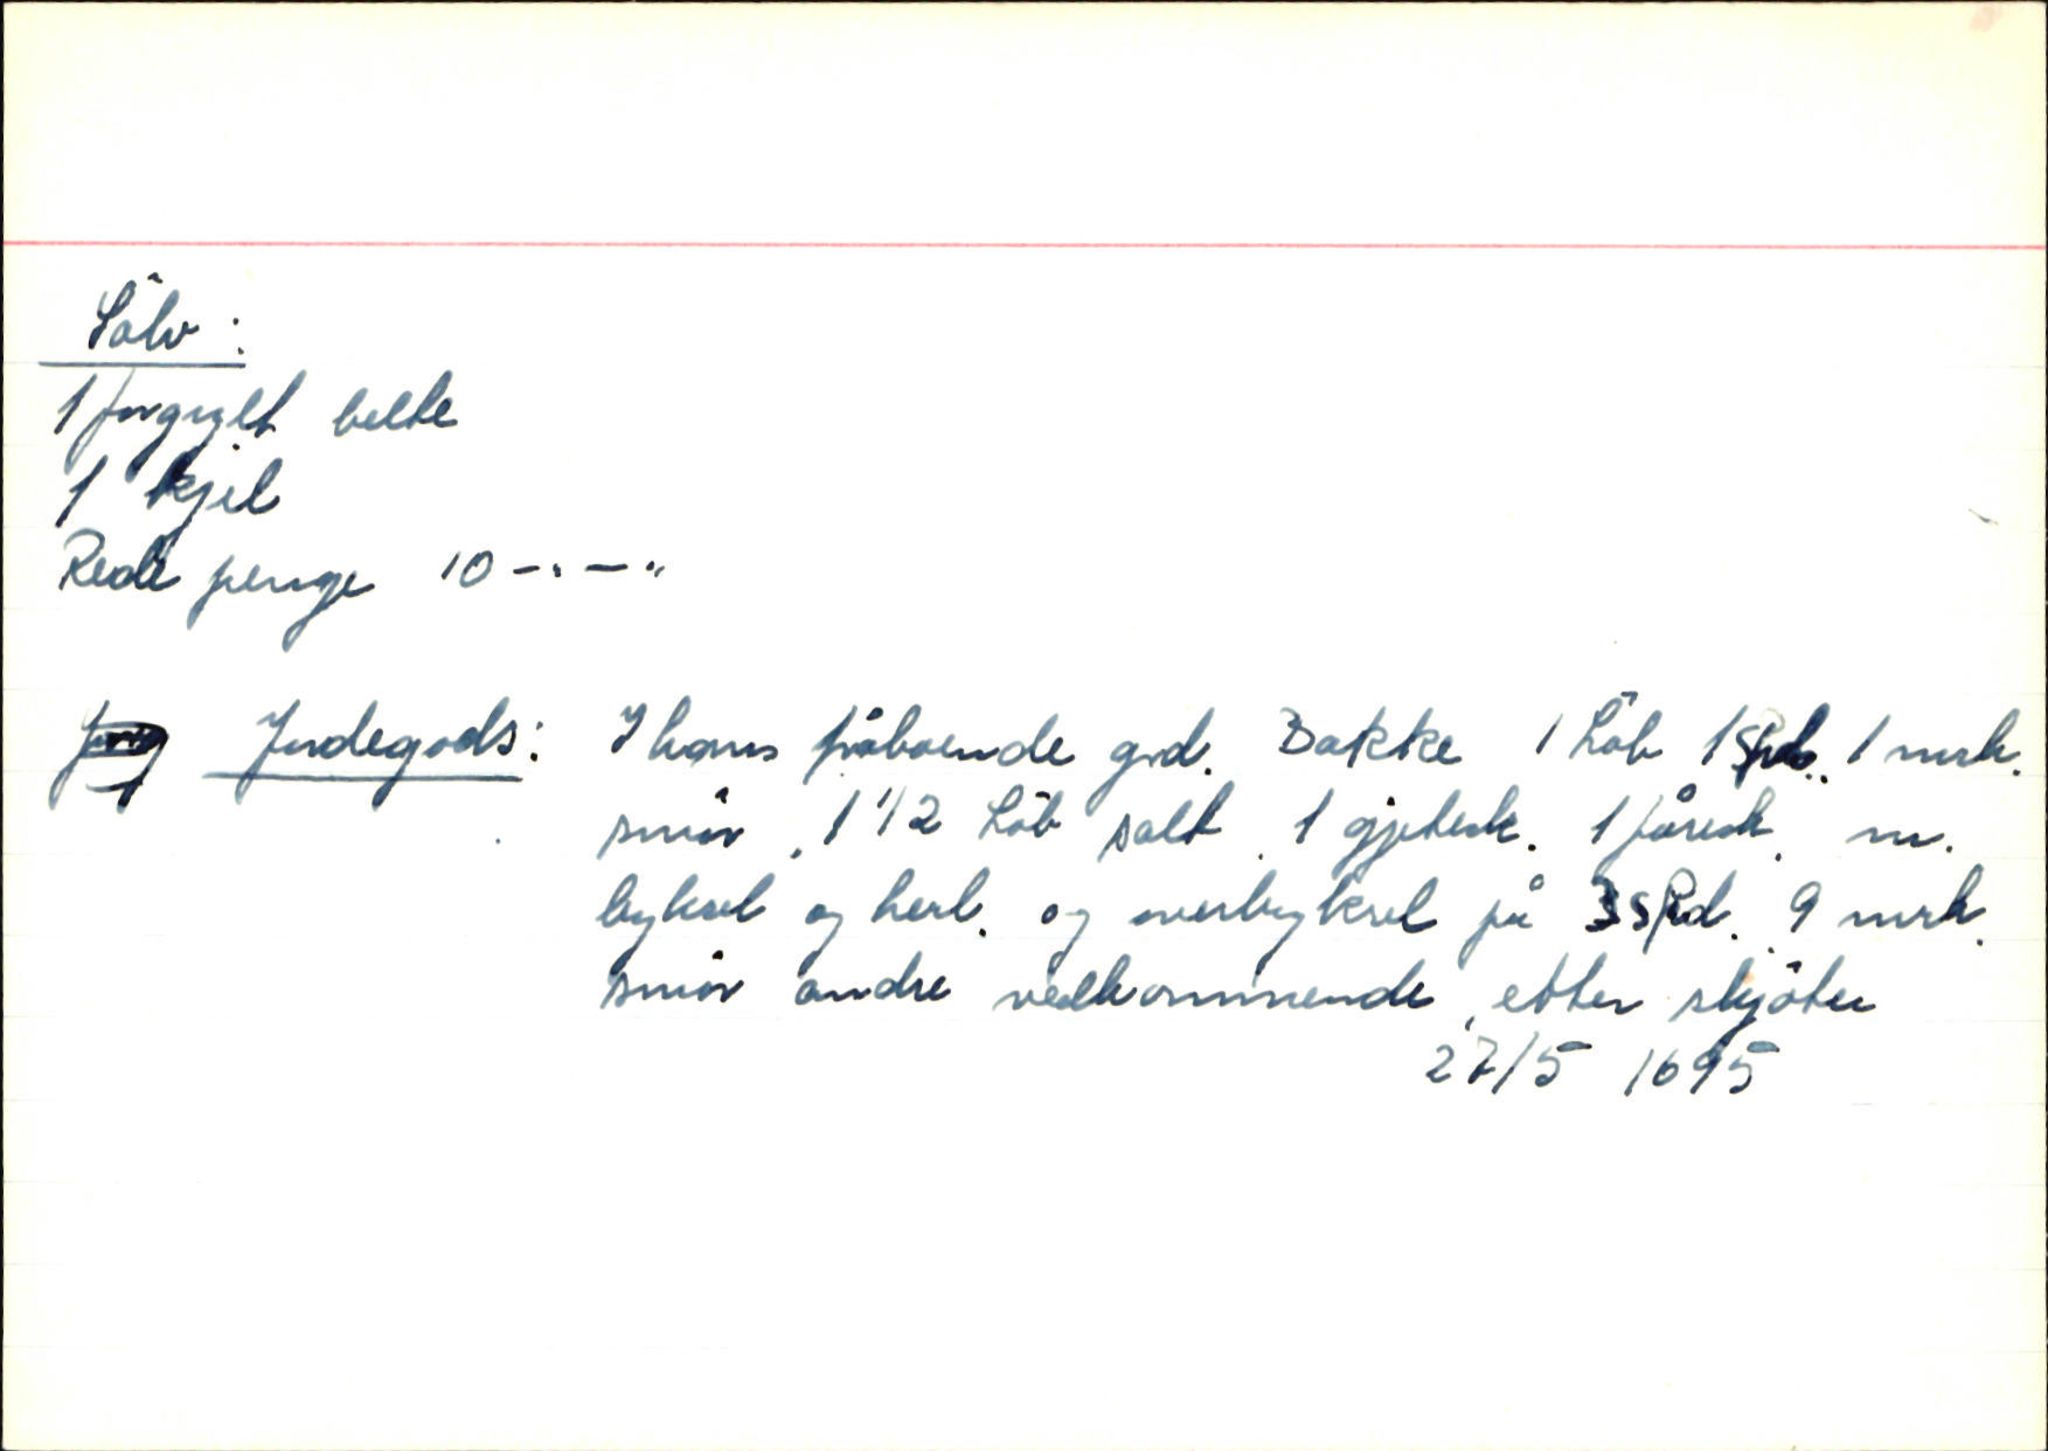 Sölv:
1 forgylt belte
1 kjel
Rede penge 10 - " - "
Jordegods: I hans påboende grd. Bakke 1 Löb 1 Spd. 1 mrk.
smör, 1 1/2 Löb salt, 1 gjetesk. 1 fåresk. m.
byksel og herl. og overbyksel på 3 Spd. 9 mrk.
smör andre vedkommende, etter skjöter
27/5 1695